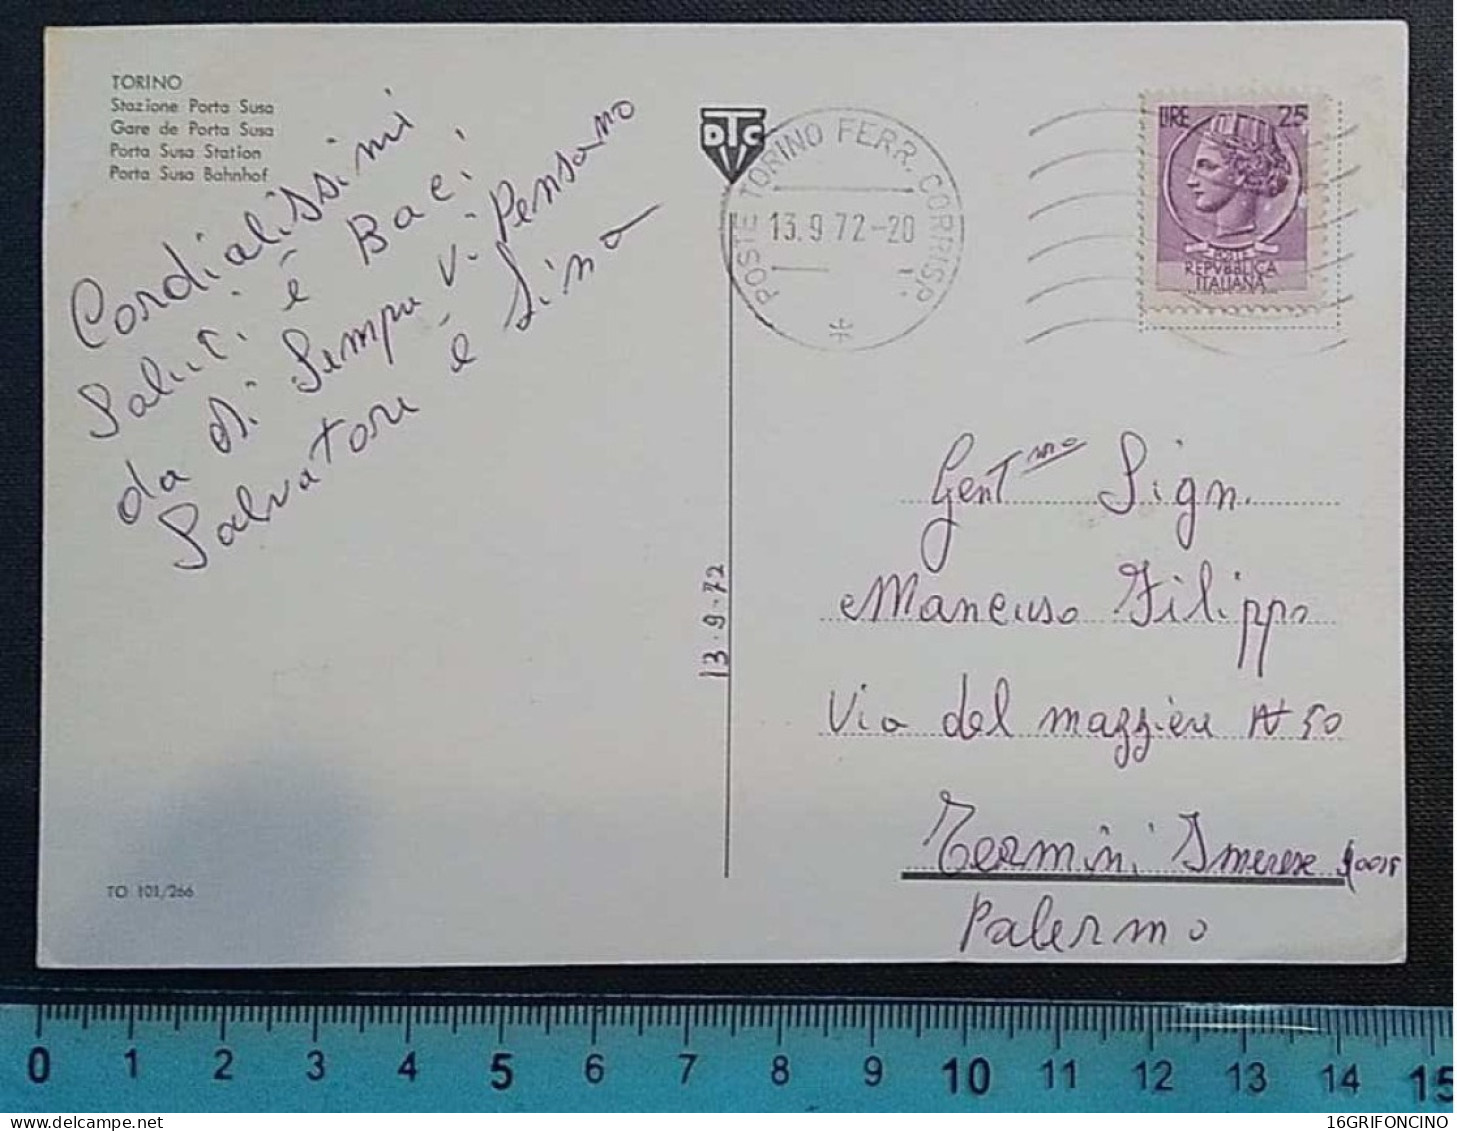 TORINO
Stazione Porta Susa
Gare de Porta Susa
Porta Susa Station
Porta Susa Bahnhof
Cordialissimi
Saluti é Baci
da di Sempre Vi Pensano
Salvatore é Sina
TO 101/266
DTC
13.9.72
POSTE TORINO FERR. CORRISP.
13.9.72-20
LIRE 25
POSTE
REPVBBLICA
ITALIANA
Gent.mo Sign.
Mancuso Filippo
Via del mazziere N 50
Termini Imerese 90018
Palermo
0 1 2 3 4 5 6 7 8 9 10 11 12 13 14 15
16GRIFONCINO